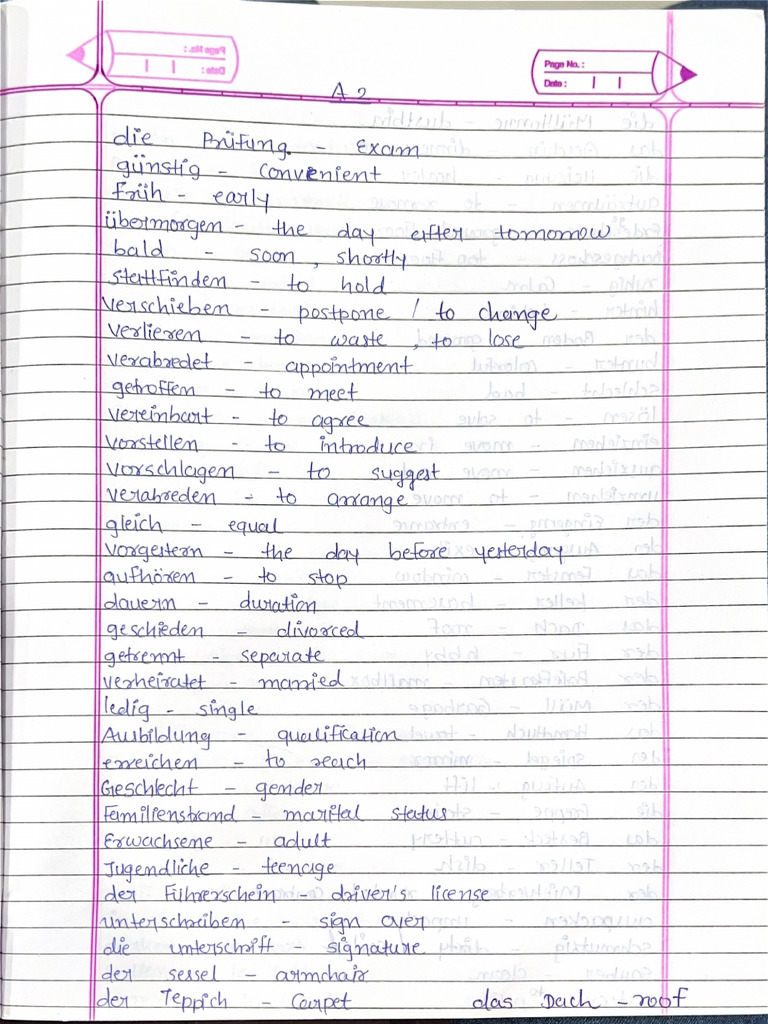 Page No.:
Date:
A2
die Prüfung - Exam
günstig - convenient
Früh - early
übermorgen - the day after tomorrow
bald - soon, shortly
stattfinden - to hold
verschieben - postpone / to change
verlieren - to waste, to lose
verabredet - appointment
getroffen - to meet
vereinbart - to agree
vorstellen - to introduce
vorschlagen - to suggest
verabreden - to arrange
gleich - equal
vorgestern - the day before yesterday
aufhören - to stop
dauern - duration
geschieden - divorced
getrennt - separate
verheiratet - married
ledig - single
Ausbildung - qualification
erreichen - to reach
Geschlecht - gender
Familienstrand - marital status
Erwachsene - adult
Jugendliche - teenage
der Führerschein - driver's license
unterschreiben - sign over
die unterschrift - signature
der sessel - armchair
der Teppich - Carpet das Dach - roof